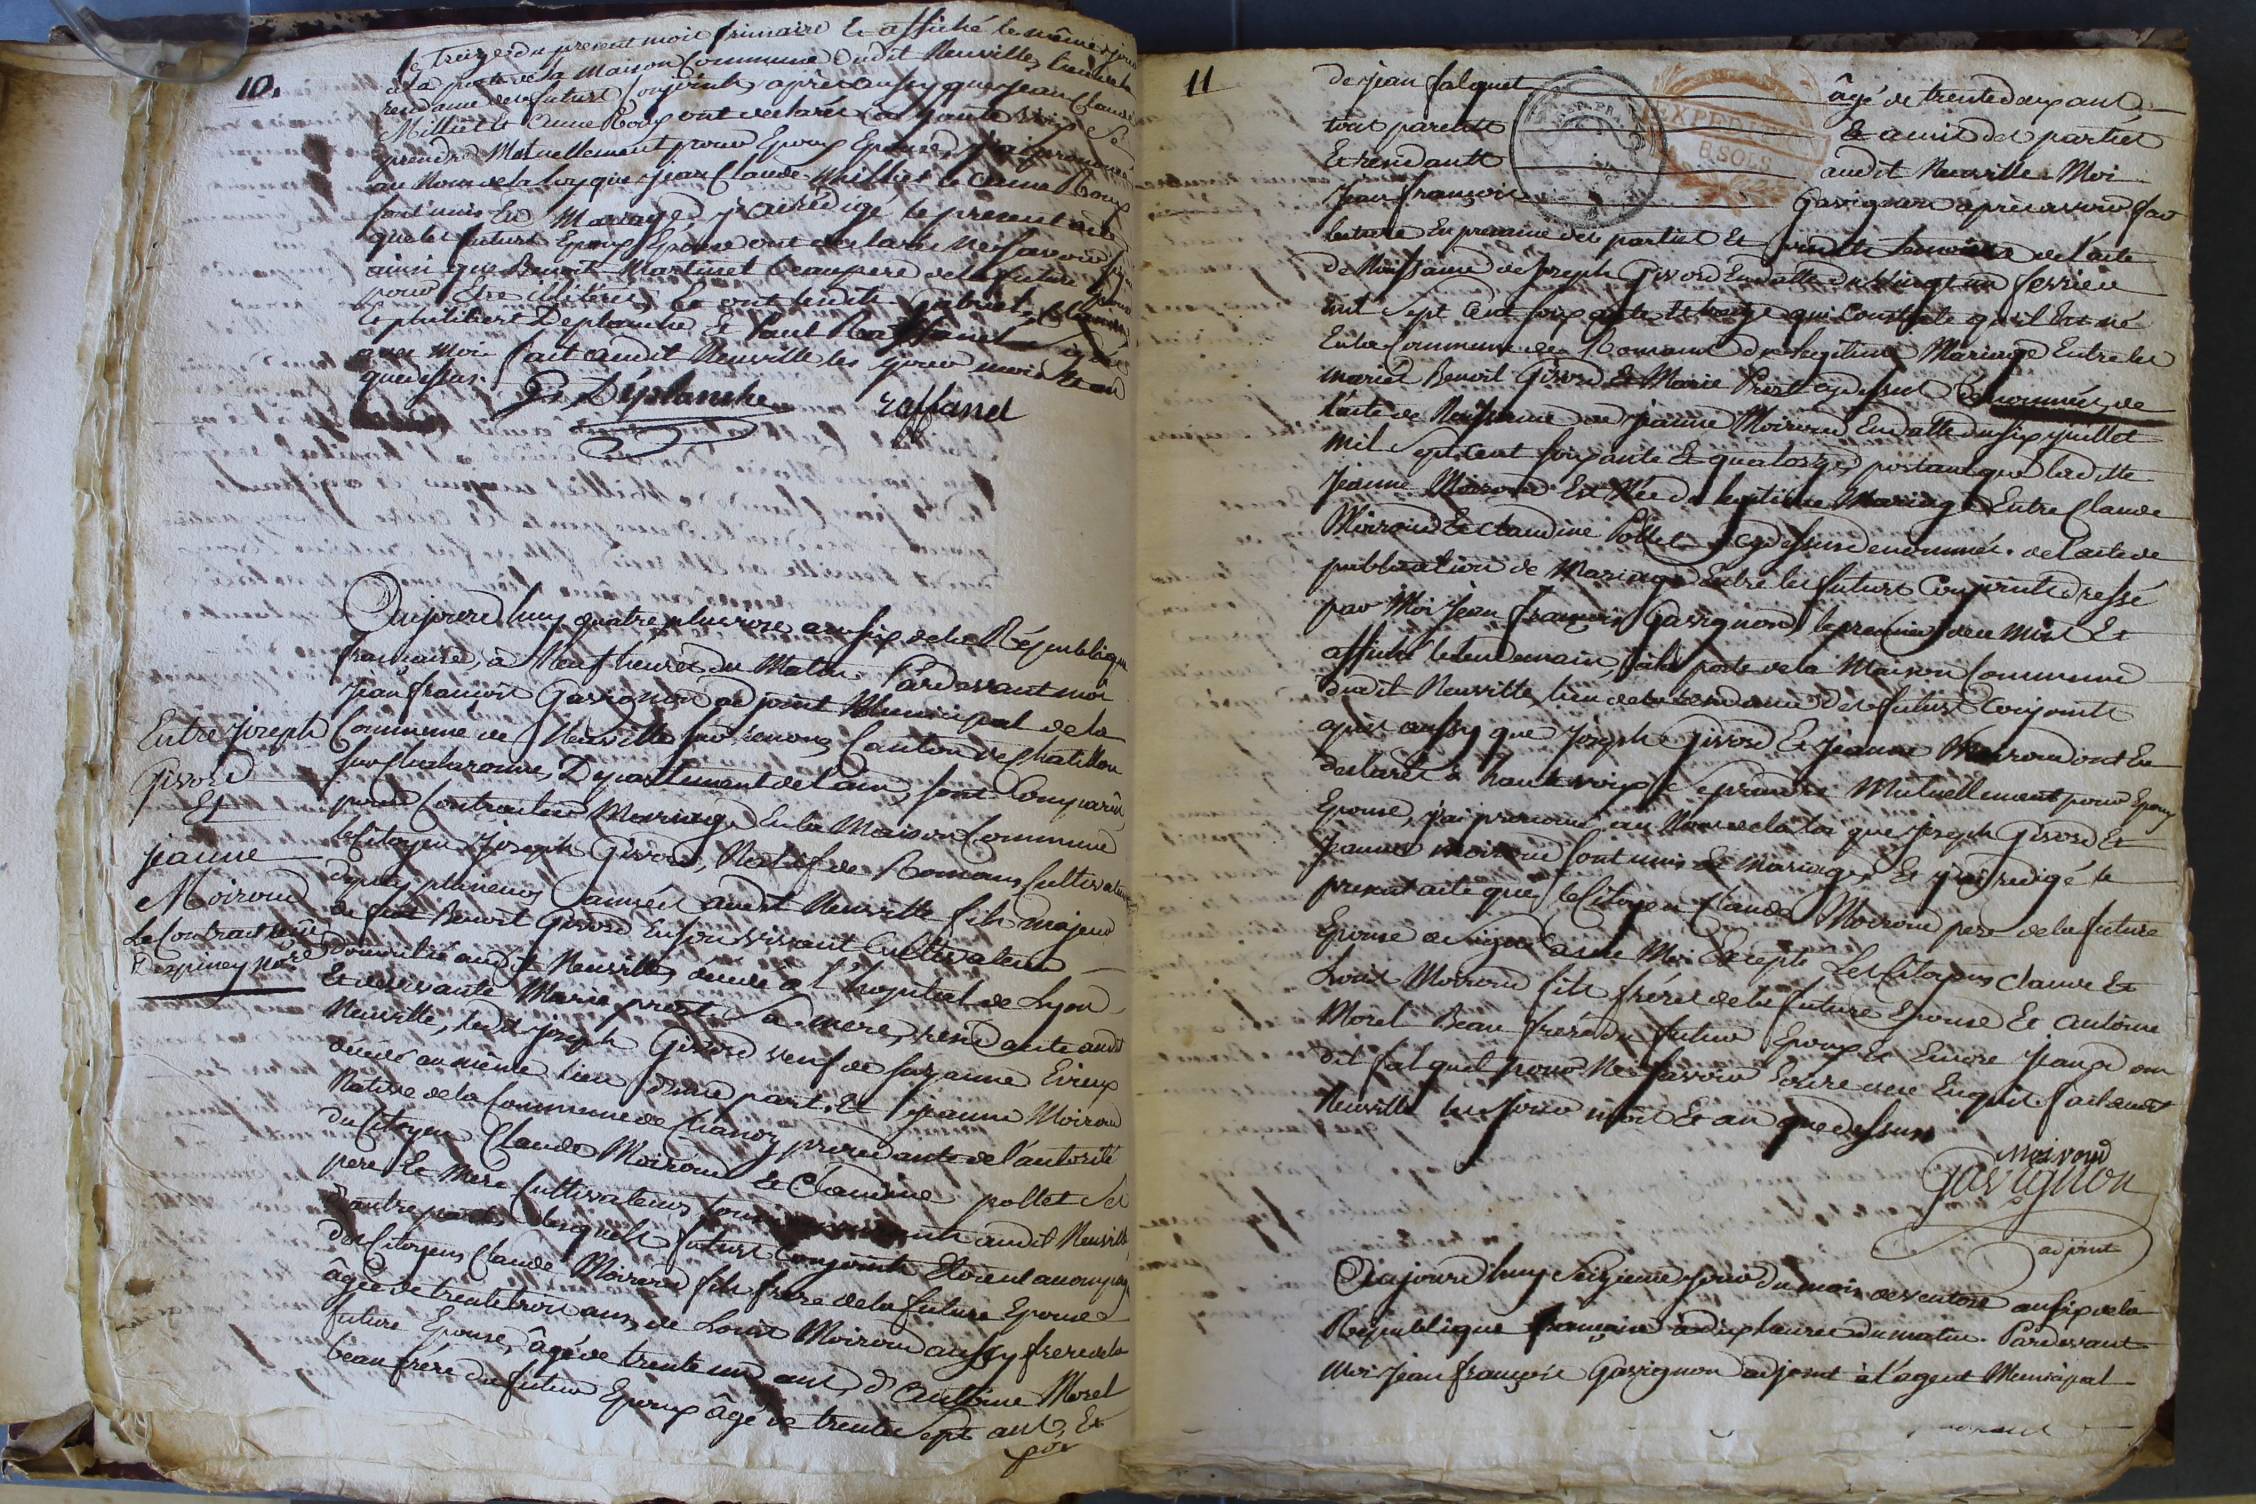 10.
le treize du present mois frimaire Et affiché le même jour
à la porte de la Maison Commune dudit Neuville, lieu de la
residance des futurs Conjoints, après aussy que jean Claude
Milliet Et Anne Roux ont declarés à haute voix Se
prendre Mutuellement pour Epoux Epouse, j'ai prononcé
au Nom de la loy que jean Claude Milliet Et Anne Roux
sont unis En Mariage, Et j'ai redigé le present acte
que les futurs Epoux Epouse ont declarés ne savoir signer
ainsi que Benoit Martinet beaupere de la future Epouse
pour être illiterés, Et ont lesdits
Et philibert Deplanche, Et Raffanel signé
avec moi. fait audit Neuville les jour mois Et an
que dessus.
P. Déplanche raffanel
Entre Joseph
Givord
Et
jeanne
Moiroud
Aujourd'huy quatre pluviose an six de la République
francaise, à Neuf heures du Matin. Pardevant moi
Jean françois Gavignon adjoint Municipal de la
Commune de Neuville sur renons, Canton de Chatillon
sur Chalaronne, Departement de l'ain, sont Comparûs
pour Contracter Mariage En la Maison Commune
le Citoyen Joseph Givord, Natif de Romans, Cultivateur
depuis plusieurs années audit Neuville fils majeur
de feu Benoit Givord En son vivant Cultivateur
domicilié audit Neuville, décédé à l'hopital de Lyon
Et de vivante Marie prost Sa mere, residante audit
Neuville, ledit joseph Givord veuf de Suzanne Evieux
décédée au même lieu d'une part, Et jeanne Moiroud
Native de la Commune de Chanoz, procedante de l'autorité
du Citoyen Claude Moiroud Et Claudine pollet Ses
pere Et Mere Cultivateurs audit Neuville
d'autre part, lesquels futurs Conjoints Etoient accompagnés
des Citoyens Claude Moiroud fils frere de la future Epouse
âgé de trente trois ans, de Louis Moiroud aussy frere de la
future Epouse, âgé de trente un ans, d'Antoine Morel
beau frére du futur Epoux âgé de trente sept ans, Et
11
de jean falquet âgé de trente deux ans,
tous parents Et amis des parties
Et residants audit Neuville. Moi
Jean françois Gavignon après avoir fait
lecture En presence des parties Et des temoins de l'acte
de Naissance de Joseph Givord En datte du vingt un fevrier
mil Sept Cent soixante qui Constate qu'il Est né
En la Commune de Romans du legitime Mariage Entre les
mariés Benoit Givord Et Marie Prost cydessus denommés, de
l'acte de Naissance de jeanne Moiroud En datte du six juillet
mil Sept Cent soixante Et quatorze, portant que ladite
Jeanne Moiroud Est Née du legitime Mariage Entre Claude
Moiroud Et Claudine Pollet cydessus denommés. de l'acte de
publication de Mariage Entre les futurs Conjoints dressé
par Moi Jean françois Gavignon, le premier de ce mois Et
affiché le lendemain, à la porte de la Maison Commune
dudit Neuville, lieu de la residance des futurs Conjoints
après aussy que Joseph Givord Et Jeanne Moiroud ont Eu
declarés à haute voix Se prendre Mutuellement pour Epoux
Epouse, j'ai prononcé au Nom de la loi que Joseph Givord Et
Jeanne Moiroud sont unis En mariage, Et j'ai redigé le
present acte que le Citoyen Claude Moiroud pere de la future
Epouse a Signé avec Moi Excepté Les Citoyens Claude Et
Louis Moiroud fils fréres de la future Epouse Et Antoine
Morel Beau frére du futur Epoux Et Encore Jean
dit falquet pour Ne savoir Ecrire de ce Enquis. fait audit
Neuville les jour mois Et an que dessus
moiroud
Gavignon
adjoint
Aujourd'huy Seizieme jour du mois de ventose an six de la
République francaise à dix heures du matin. Pardevant
moi Jean françois Gavignon adjoint à l'agent Municipal